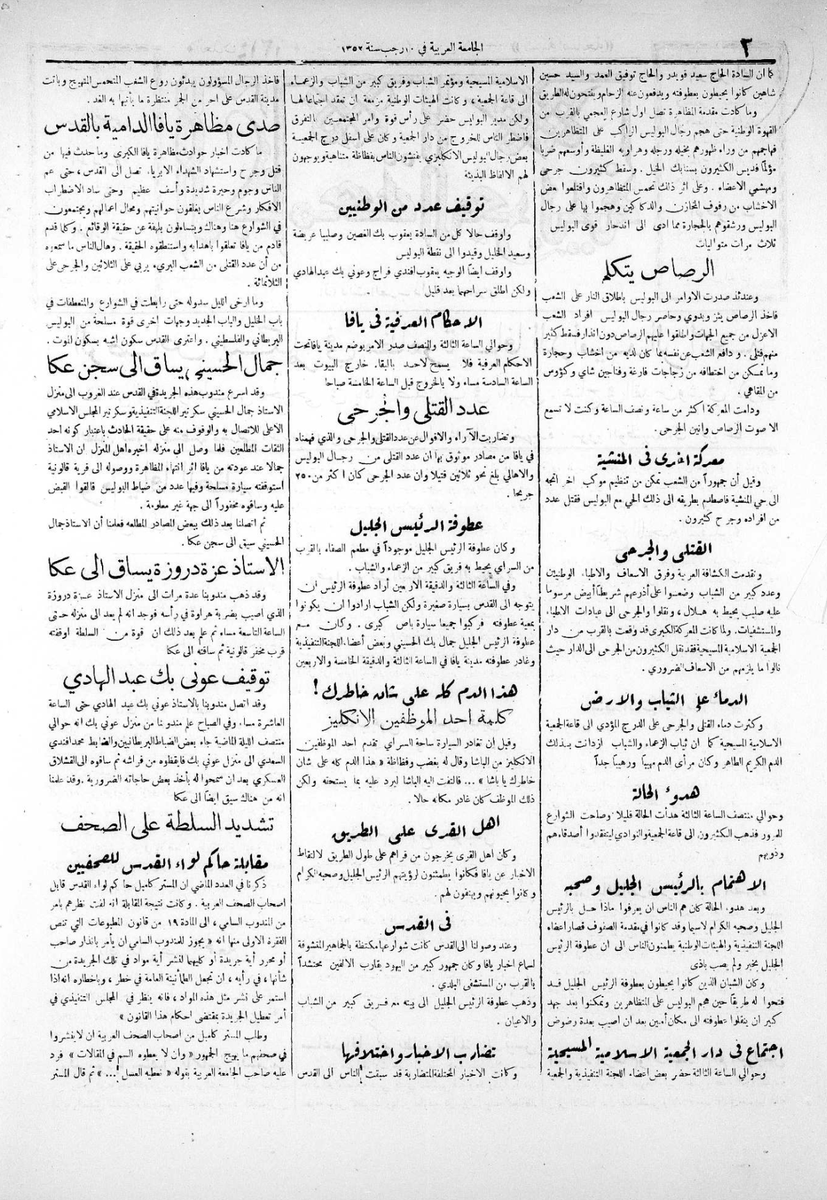 ٢
الجامعة العربية في ١٠ رجب سنة ١٣٥٢
كما ان السادة الحاج سعيد قويدر والحاج توفيق العمد والسيد حسين
شاهين كانوا يحيطون بعطوفته ويدفعون عنه الزحام ويفتحون له الطريق
وما كادت مقدمة المظاهرة تصل اول شارع العجمي بالقرب من
القهوة الوطنية حتى هجم رجال البوليس الراكب على المتظاهرين
فهاجمهم من وراء ظهورهم بخيله ورجله وهراويه الغليظة وأوسعهم ضربا
مؤلماً فديس الكثيرون بسنابك الخيل . وسقط كثيرون جرحى
ومهشمي الاعضاء . وعلى اثر ذلك تحمس المتظاهرون واقتلعوا بعض
الاخشاب من رفوف المخازن والدكاكين وهجموا بها على رجال
البوليس ورشقوهم بالحجارة مما ادى الى اندحار قوى البوليس
ثلاث مرات متواليات
الرصاص يتكلم
وعندئذ صدرت الاوامر الى البوليس باطلاق النار على الشعب
فاخذ الرصاص يئز ويدوي وحاصر رجال البوليس افراد الشعب
الاعزل من جميع الجهات واطلقوا عليهم الرصاص دون انذار فسقط كثير
منهم قتلى . ودافع الشعب عن نفسه بما كان لديه من اخشاب وحجارة
وما تمكن من اختطافه من زجاجات فارغة وفناجين شاي وكؤوس
من المقاهي .
ودامت المعركة اكثر من ساعة ونصف الساعة وكنت لا تسمع
الا صوت الرصاص وانين الجرحى .
معركة اخرى في المنشية
وقيل أن جمهوراً من الشعب تمكن من تنظيم موكب اخر اتجه
الى حي المنشية فاصطدم بطريقه الى ذلك الحي مع البوليس فقتل عدد
من افراده وجرح كثيرون .
القتلى والجرحى
وتقدمت الكشافة العربية وفرق الاسعاف والاطباء الوطنيين
وعدد كبير من الشباب وضعوا على أذرعهم شريطاً أبيض مرسوماً
عليه صليب يحيط به هلال ، ونقلوا الجرحى الى عيادات الاطباء
والمستشفيات. ولما كانت المعركة الكبرى قد وقعت بالقرب من دار
الجمعية الاسلامية المسيحية فقد نقل الكثيرون من الجرحى الى الدار حيث
نالوا ما يلزمهم من الاسعاف الضروري .
الدماء على الثياب والارض
وكثرت دماء القتلى والجرحى على الدرج المؤدي الى قاعة الجمعية
الاسلامية المسيحية كما ان ثياب الزعماء والشباب ازدانت بذلك
الدم الكريم الطاهر وكان مرأى الدم مهيباً ورهيباً جداً
هدوء الحالة
وحوالي منتصف الساعة الثالثة هدأت الحالة قليلا وصلحت الشوارع
للمرور فذهب الكثيرون الى قاعة الجمعية والنوادي ليتفقدوا أصدقاءهم
وذويهم
الاهتمام بالرئيس الجليل وصحبه
وبعد هدوء الحالة كان هم الناس ان يعرفوا ماذا حل بالرئيس
الجليل وصحبه الكرام لاسيما وقد كانوا في مقدمة الصفوف فصار أعضاء
اللجنة التنفيذية والهيئات الوطنية يطمئنون الناس الى ان عطوفة الرئيس
الجليل بخير ولم يصب باذى
وكان الشبان الذين كانوا يحيطون بعطوفة الرئيس الجليل قد
فتحوا له طريقاً حين هجم البوليس على المتظاهرين وتمكنوا بعد جهد
كبير ان ينقلوا عطوفته الى مكان أمين بعد ان اصيب بعدة رضوض
اجتماع في دار الجمعية الاسلامية المسيحية
وحوالي الساعة الثالثة حضر بعض اعضاء اللجنة التنفيذية والجمعية
الاسلامية المسيحية ومؤتمر الشباب وفريق كبير من الشباب والزعماء
الى قاعة الجمعية ، وكانت الهيئات الوطنية مزمعة ان تعقد اجتماعا لها
ولكن مدير البوليس حضر على رأس قوة وامر المجتمعين بالتفرق
فاضطر الناس للخروج من دار الجمعية وكان على أسفل درج الجمعية
بعض رجال البوليس الانكليزي يفتشون الناس بفظاظة متناهية ويوجهون
لهم الالفاظ البذيئة
توقيف عدد من الوطنيين
واوقف حالا كل من السادة يعقوب بك الغصين وصليبا عريضة
وسعيد الخليل وقيدوا الى نقطة البوليس
واوقف أيضاً الوجيه يعقوب افندي فراج وعوني بك عبد الهادي
ولكن اطلق سراحهما بعد قليل
الاحكام العرفية في يافا
وحوالي الساعة الثالثة والنصف صدر الامر بوضع مدينة يافا تحت
الاحكام العرفية فلا يسمح لاحد بالبقاء خارج البيوت بعد
الساعة السادسة مساء ولا بالخروج قبل الساعة الخامسة صباحا
عدد القتلى والجرحى
وتضاربت الآراء والاقوال عن عدد القتلى والجرحى و الذي فهمناه
في يافا من مصادر موثوق بها ان عدد القتلى من رجال البوليس
والاهالي بلغ نحو ثلاثين قتيلا وان عدد الجرحى كان اكثر من ٢٥٠
جريحا .
عطوفة الرئيس الجليل
وكان عطوفة الرئيس الجليل موجوداً في مطعم الصفاء بالقرب
من السراي يحيط به فريق كبير من الزعماء والشباب .
وفي الساعة الثالثة والدقيقة الاربعين أراد عطوفة الرئيس ان
يتوجه الى القدس بسيارة صغيرة ولكن الشباب ارادوا ان يكونوا
بمعية عطوفته فركبوا جميعا سيارة باص كبرى . وكان مع
عطوفة الرئيس الجليل جمال بك الحسيني وبعض أعضاء اللجنة التنفيذية
وغادر عطوفته مدينة يافا في الساعة الثالثة والدقيقة الخامسة والاربعين
هذا الدم كله على شان خاطرك !
كلمة احد الموظفين الانكليز
وقبل أن تغادر السيارة ساحة السراي تقدم احد الموظفين
الانكليز من الباشا وقال له بغضب وفظاظة « هذا الدم كله على شان
خاطرك يا باشا » ... فالتفت اليه الباشا ليرد عليه بما يستحقه ولكن
ذلك الموظف كان غادر مكانه حالا .
اهل القرى على الطريق
وكان أهل القرى يخرجون من قراهم على طول الطريق لالتقاط
الاخبار عن يافا فكانوا يطمئنون لرؤيتهم الرئيس الجليل وصحبه الكرام
وكانوا يحيونهم ويهتفون لهم .
في القدس
وعند وصولنا الى القدس كانت شوارعها مكتظة بالجماهير المتشوقة
لسماع اخبار يافا وكان جمهور كبير من اليهود يقارب الالفين محتشداً
بالقرب من المستشفى البلدي .
وذهب عطوفة الرئيس الجليل الى بيته مع فريق كبير من الشباب
والاعيان .
تضارب الاخبار واختلافها
وكانت الاخبار المختلفة المتضاربة قد سبقت الناس الى القدس
فاخذ الرجال المسؤولون يهدئون روع الشعب المتحمس المتهيج وباتت
مدينة القدس على احر من الجمر منتظرة ما يأتيها به الغد .
صدى مظاهرة يافا الدامية بالقدس
ما كادت اخبار حوادث مظاهرة يافا الكبرى وما حدث فيها من
قتل وجرح واستشهاد الشهداء الابرياء تصل الى القدس ، حتى عم
الناس وجوم وحيرة شديدة وأسف عظيم وحتى ساد الاضطراب
الافكار وشرع الناس يغلقون حوانيتهم ومحال اعمالهم ويجتمعون
في الشوارع هنا وهناك ويتساءلون بلهفة عن حقيقة الوقائع . وكلما قدم
قادم من يافا تعلقوا باهدابه واستنطقوه الحقيقة . وهال الناس ما سمعوه
من أن عدد القتلى من الشعب البريء يربي على الثلاثين والجرحى على
الثلاثمائة .
وما ارخى الليل سدوله حتى رابطت في الشوارع والمنعطفات في
باب الخليل والباب الجديد وجهات اخرى قوة مسلحة من البوليس
البريطاني والفلسطيني . واعترى القدس سكون اشبه بسكون الموت .
جمال الحسيني يساق الى سجن عكا
وقد اسرع مندوب هذه الجريدة في القدس عند الغروب الى منزل
الاستاذ جمال الحسيني سكرتير اللجنة التنفيذية وسكرتير المجلس الاسلامي
الاعلى للاتصال به والوقوف منه على حقيقة الحادث باعتبار كونه احد
الثقات المطلعين فلما وصل الى منزله اخبره اهل المنزل ان الاستاذ
جمالا عند عودته من يافا اثر انتهاء المظاهرة ووصوله الى قرية قالونية
استوقفته سيارة مسلحة وفيها عدد من ضباط البوليس فالقوا القبض
عليه وساقوه مخفوراً الى جهة غير معلومة .
ثم اتصلنا بعد ذلك ببعض المصادر المطلعة فعلمنا أن الاستاذ جمال
الحسيني سيق الى سجن عكا .
الاستاذ عزة دروزة يساق الى عكا
وقد ذهب مندوبنا عدة مرات الى منزل الاستاذ عزة دروزة
الذي اصيب بضربة هراوة في رأسه فوجد انه لم يعد الى منزله حتى
الساعة التاسعة مساء ثم علم بعد ذلك ان قوة من السلطة اوقفته
قرب مخفر قالونية ثم ساقته الى عكا
توقيف عوني بك عبد الهادي
وقد اتصل مندوبنا بالاستاذ عوني بك عبد الهادي حتى الساعة
العاشرة مساء . وفي الصباح علم مندوبنا من منزل عوني بك انه حوالي
منتصف الليلة الماضية جاء بعض الضباط البريطانيين والضابط محمد افندي
السعدي الى منزل عوني بك فايقظوه من فراشه ثم ساقوه الى القشلاق
العسكري بعد ان سمحوا له بأخذ بعض حاجاته الضرورية. وقد علمنا
انه من هناك سيق ايضاً الى عكا
تشديد السلطة على الصحف
مقابلة حاكم لواء القدس للصحفيين
ذكرنا في العدد الماضي ان المستر كامبل حاكم لواء القدس قابل
اصحاب الصحف العربية . وكانت نتيجة المقابلة انه لفت نظرهم بامر
من المندوب السامي ، الى المادة ١٩ من قانون المطبوعات التي تنص
الفقرة الاولى منها انه « يجوز للمندوب السامي أن يأمر بانذار صاحب
أو محرر أية جريدة أو كليهما لنشر أية مواد في تلك الجريدة من
شأنها ، في رأيه ، ان تجعل الطمأنينة العامة في خطر ، وباخطاره انه اذا
استمر على نشر مثل هذه المواد ، فانه ينظر في المجلس التنفيذي في
أمر تعطيل الجريدة بمقتضى احكام هذا القانون »
وطلب المستر كامبل من اصحاب الصحف العربية ان لا ينشروا
في صحفهم ما يهيج الجمهور « وان لا يعطوه السم في المقالات » فرد
عليه صاحب الجامعة العربية بقوله « نعطيه العسل ! ... » ثم قال المستر